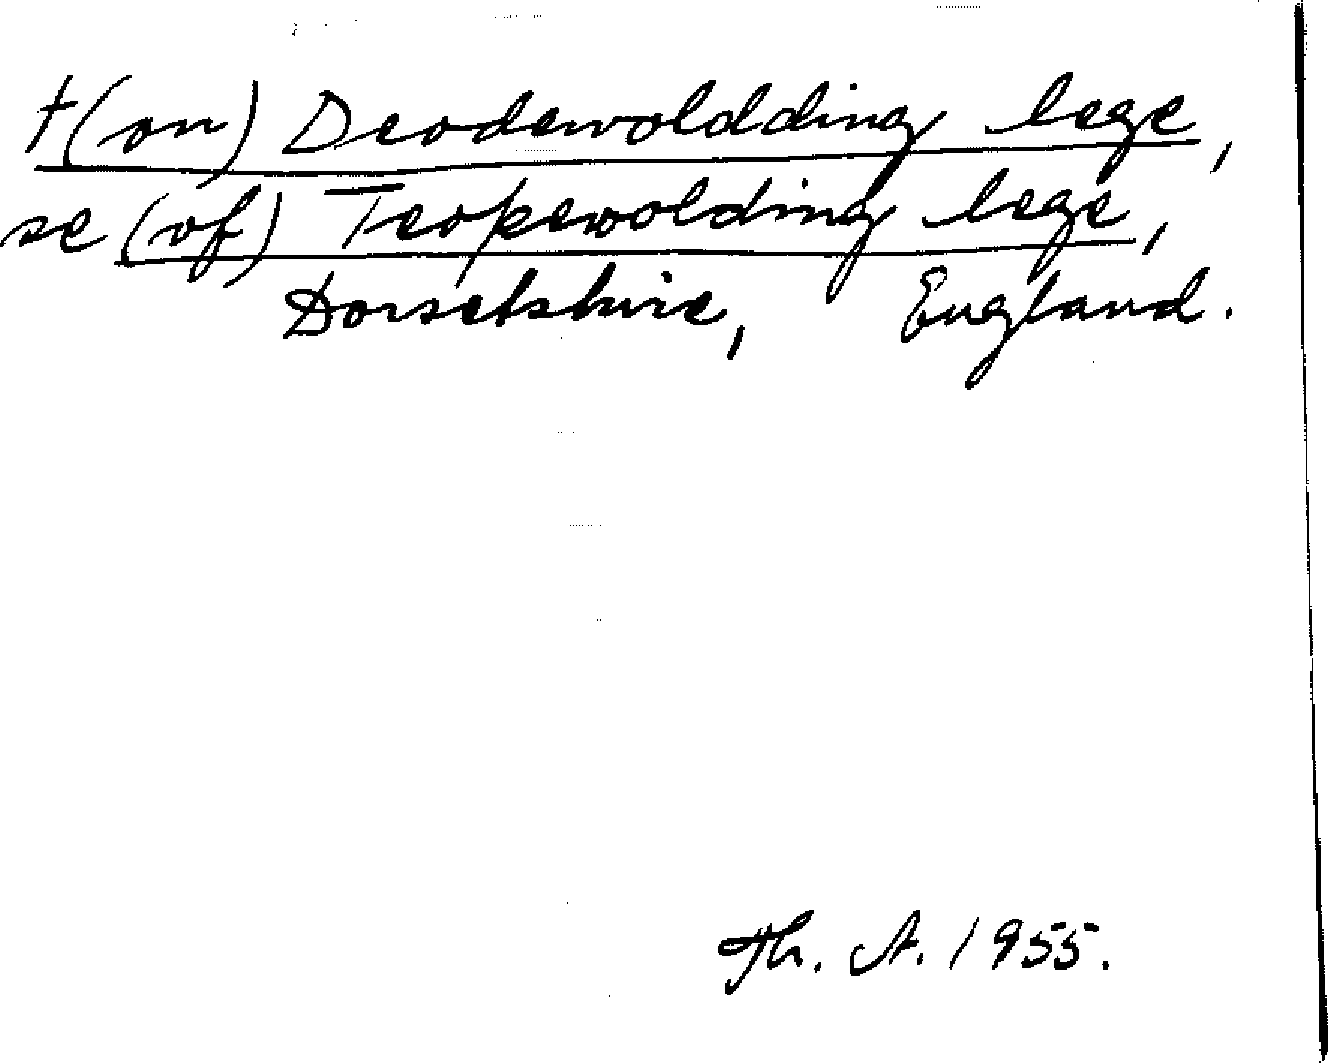 †(on) Deodewoldding lege,
se (of) Teopewolding lege,
Dorsetshire, England.
Th. A. 1955.